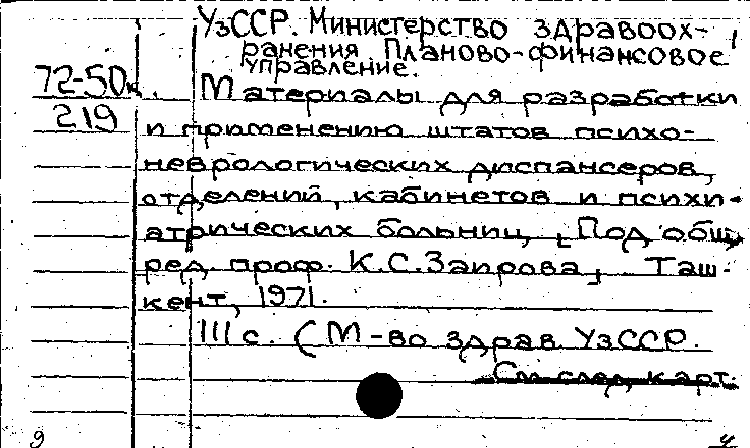 УзССР. Министерство здравоох-
ранения Планово-финансовое
управление.
72-50к.
219
Материалы для разработки
и применению штатов психо-
неврологических диспансеров,
отделений, кабинетов и психи-
атрических больниц, [Под общ,
ред. проф. К.С.Заирова, Таш-
кент, 1971.
111 с. (М-во здрав. УзССР.
См след. карт.
9